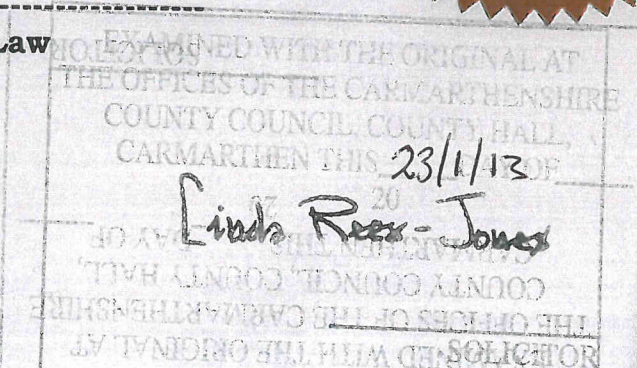 Law
EXAMINED WITH THE ORIGINAL AT
THE OFFICES OF THE CARMARTHENSHIRE
COUNTY COUNCIL, COUNTY HALL,
CARMARTHEN THIS DAY OF
23/1/13
20
Linda Rees-Jones
SOLICITOR